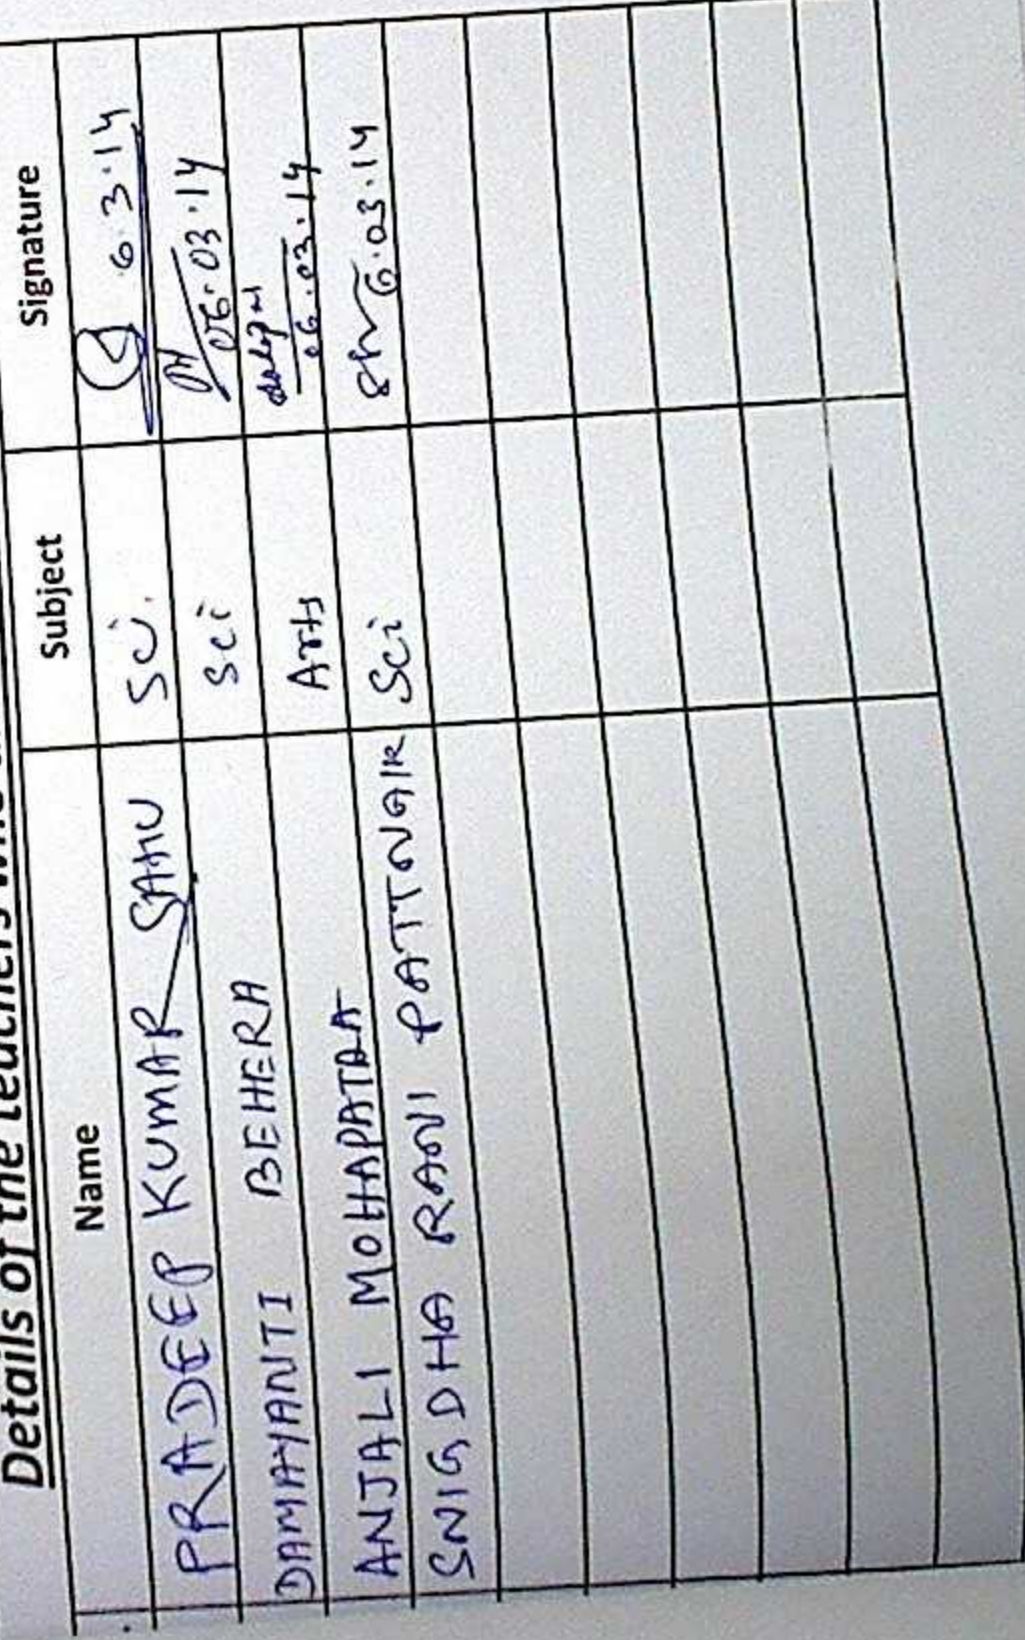 Details of the teachers
Name Subject Signature
PRADEEP KUMAR SAHU Sci. 6.3.14
DAMAYANTI BEHERA Sci 06.03.14
ANJALI MOHAPATRA Arts 06.03.14
SNIGDHA RANI PATTNAIK Sci 6.03.14